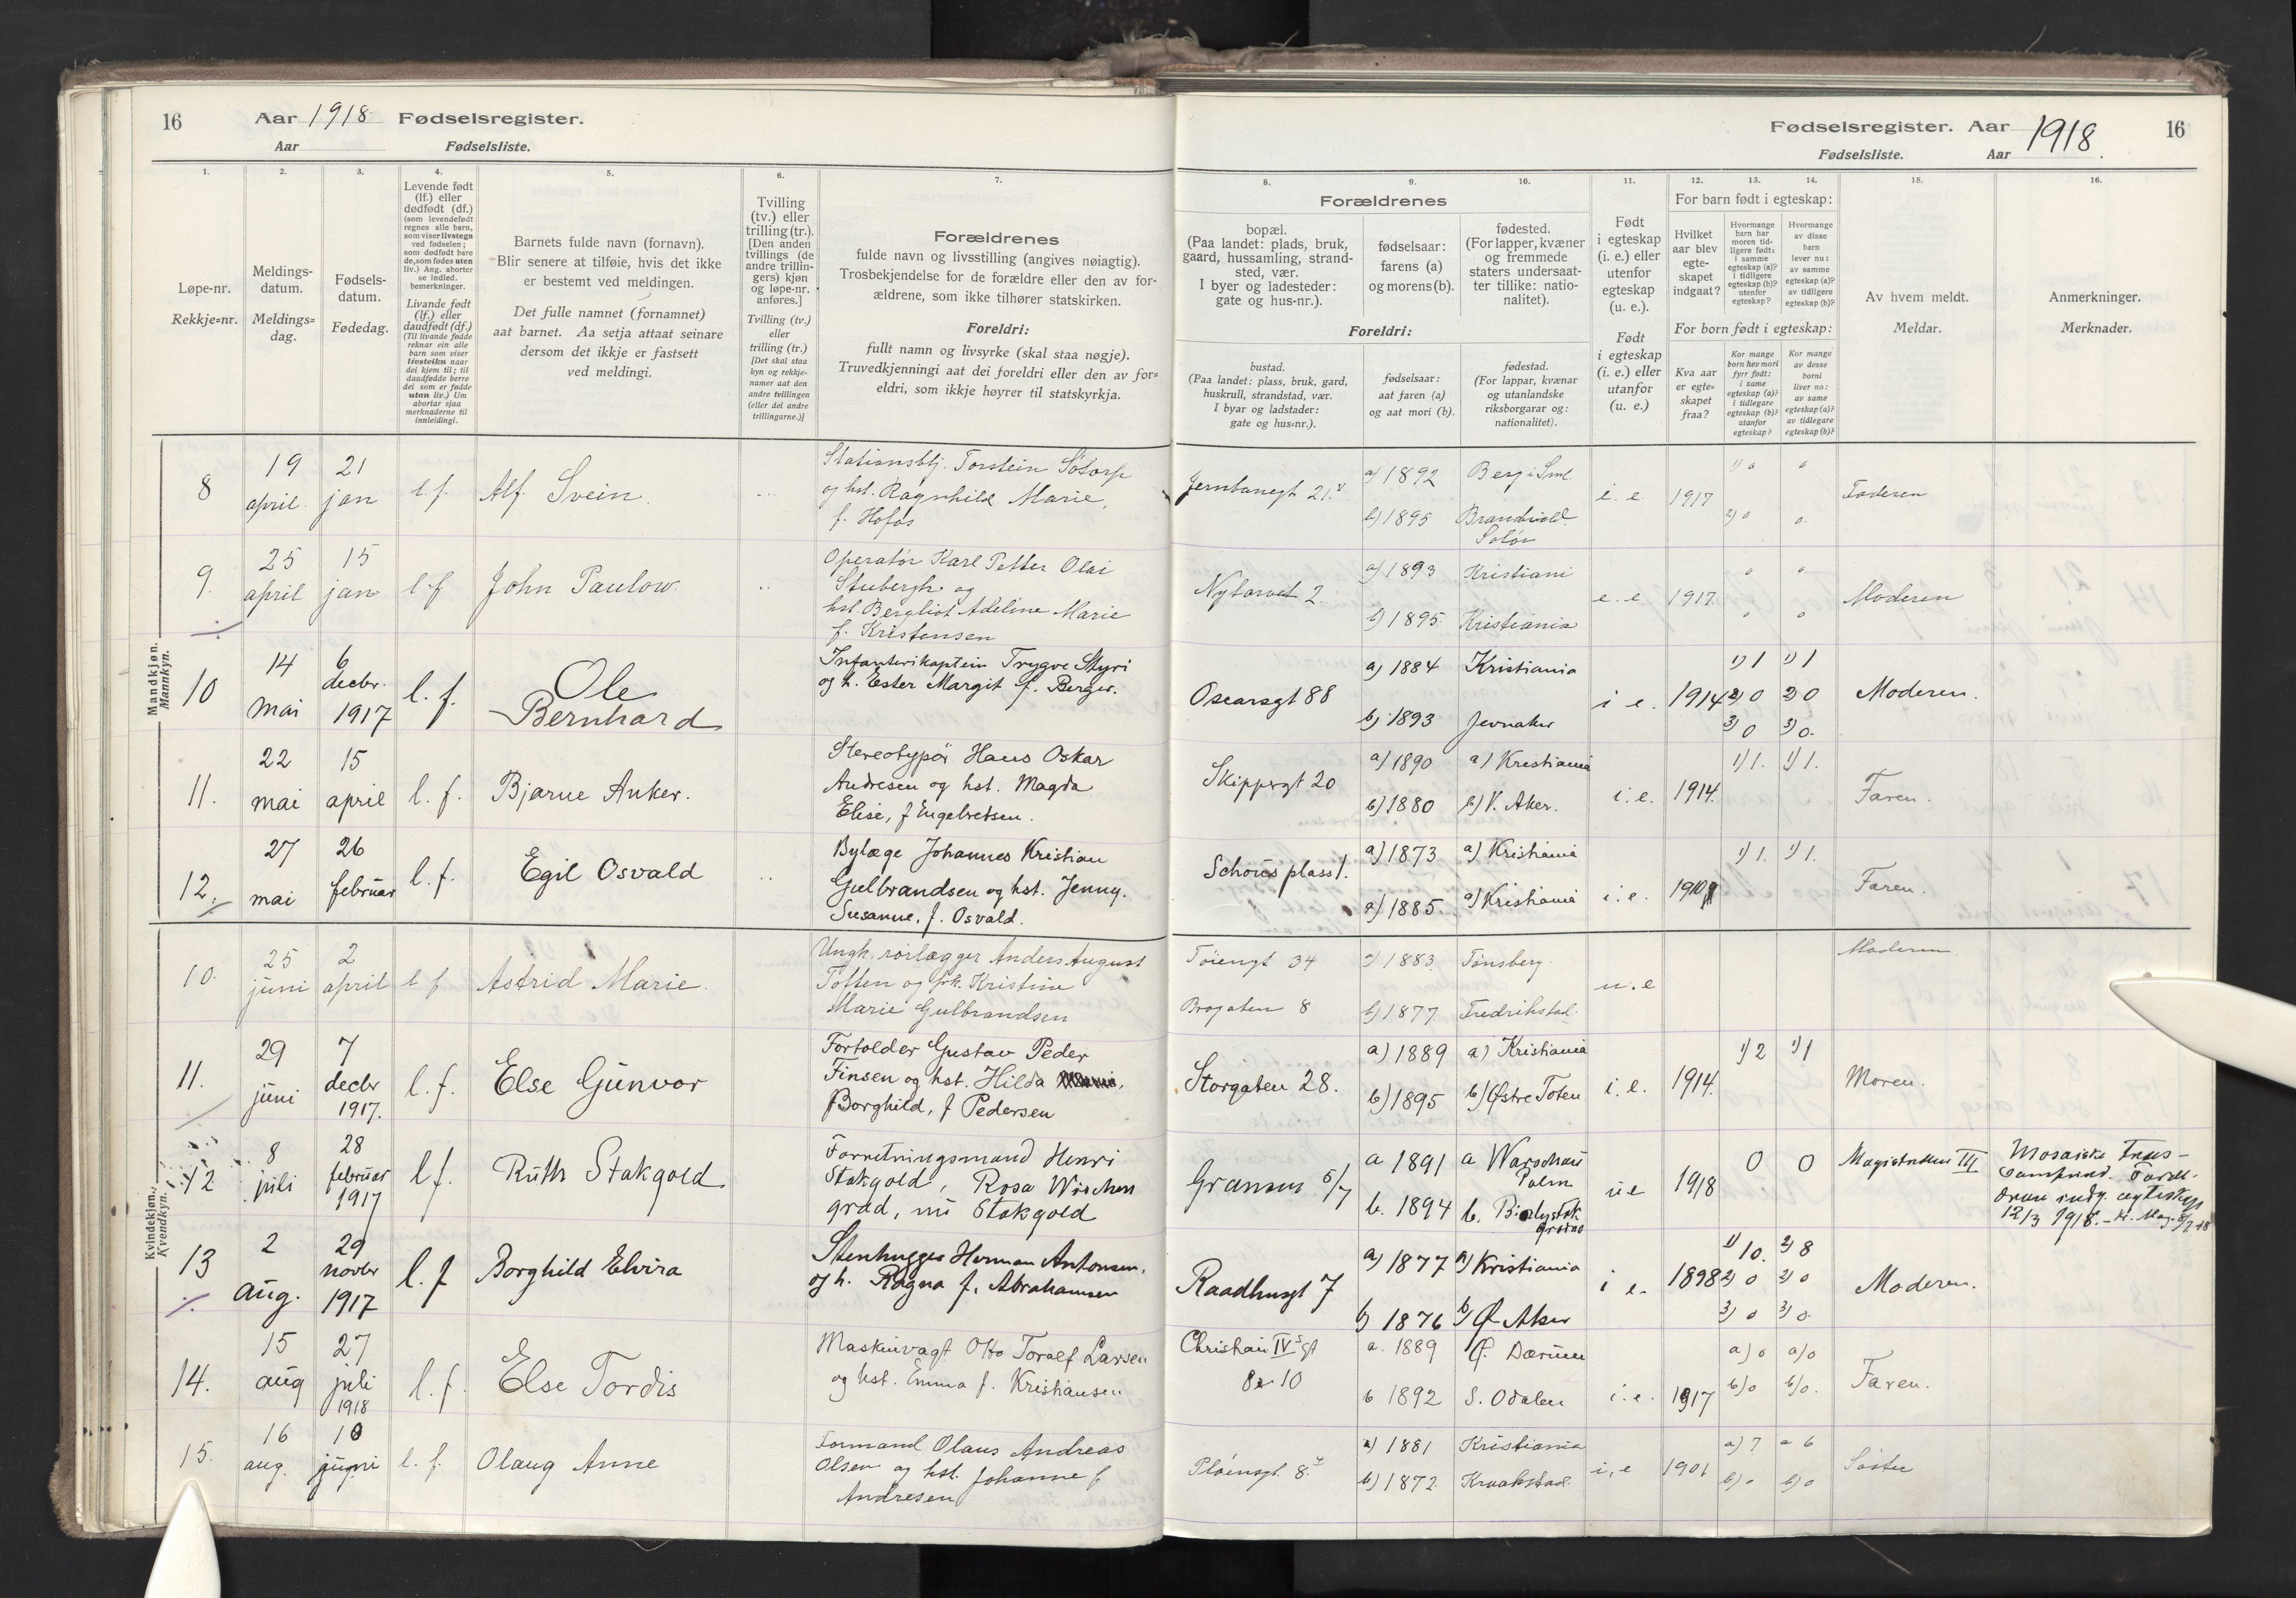 16 Aar 1918 Fødselsregister.
Aar Fødselsliste.
1. 2. 3. 4. 5. 6. 7.
Løpe-nr.
Rekkje=nr.
Meldings-
datum.
Meldings=
dag.
Fødsels-
datum.
Fødedag.
Levende født
(lf.) eller
dødfødt (df.)
(som levendefødt
regnes alle barn,
som viser livstegn
ved fødselen;
som dødfødt bare
de, som fødes uten
liv.) Ang. aborter
se indled.
bemerkninger.
Livande født
(lf.) eller
daudfødt (df.)
(Til livande fødde
reknar ein alle
barn som viser
livsteikn naar
dei kjem til; til
daudfødde berre
dei som er fødde
utan liv.) Um
abortar sjaa
merknaderne til
innleidingi.
Barnets fulde navn (fornavn).
Blir senere at tilføie, hvis det ikke
er bestemt ved meldingen.
Det fulle namnet (fornamnet)
aat barnet. Aa setja attaat seinare
dersom det ikkje er fastsett
ved meldingi.
Tvilling
(tv.) eller
trilling (tr.).
[Den anden
tvillings (de
andre trillin-
gers) kjøn
og løpe-nr.
anføres.]
Tvilling (tv.)
eller
trilling (tr.)
[Det skal staa
kyn og rekkje-
numer aat den
andre tvillingen
(eller dei andre
trillingarne.)]
Forældrenes
fulde navn og livsstilling (angives nøiagtig).
Trosbekjendelse for de forældre eller den av for-
ældrene, som ikke tilhører statskirken.
Foreldri:
fullt namn og livsyrke (skal staa nøgje).
Truvedkjenningi aat dei foreldri eller den av for=
eldri, som ikkje høyrer til statskyrkja.
Mandkjøn.
Mannkyn.
8 19 april 21 jan l.f. Alf Svein
Stationsbtj. Torstein Sötorp
og hst. Ragnhild Marie,
f. Hofos
9. 25 april 15 jan l.f John Paulow.
Operatör Karl Petter Olai
Stubergh og
hst. Bergliot Adeline Marie
f. Kristensen
10 14 mai 6 decbr. 1917 l. f. Ole
Bernhard
Infanterikaptein Trygve Styri
og h. Ester Margit f. Berger.
11. 22 mai 15 april l. f. Bjarne Anker.
Stereotypör Hans Oskar
Andresen og hst. Magda
Elise, f Engebretsen.
12. 27 mai 26 februar l. f. Egil Osvald
Bylæge Johannes Kristian
Gulbrandsen og hst. Jenny.
Susanne, f. Osvald.
Kvindekjøn.
Kvendkyn.
10. 25 juni 2 april l f Astrid Marie.
Ungk. rörlægger Anders August
Toften og frk. Kristine
Marie Gulbrandsen
11. 29 juni 7 decbr 1917. l. f. Else Gunvor
Fortolder Gustav Peder
Finsen og hst. Hilda
Borghild, f Pedersen
12 8 juli 28 februar 1917 l f. Ruth Stakgold
Forretningsmand Henri
Stakgold, Rosa Wischen
grad, nu Stakgold
13 2 aug. 29 novbr 1917 l. f Borghild Elvira
Stenhugger Herman Antonsen,
og h. Ragna f. Abrahamsen
14. 15 aug 27 juli 1918 l. f. Else Tordis
Maskinvagt Otto Toralf Larsen
og hst. Emma f. Kristiansen
15. 16 aug. 10 juni l. f. Olaug Anne
Formand Olaus Andreas
Olsen og hst. Johanne f
Andresen
Fødselsregister. Aar 1918 16
Fødselsliste. Aar
8. 9. 10. 11. 12. 13. 14. 15. 16.
Forældrenes
bopæl.
(Paa landet: plads, bruk,
gaard, hussamling, strand-
sted, vær.
I byer og ladesteder:
gate og hus-nr.).
fødselsaar:
farens (a)
og morens (b).
fødested.
(For lapper, kvæner
og fremmede
staters undersaat-
ter tillike: natio-
nalitet).
Foreldri:
bustad.
(Paa landet: plass, bruk, gard,
huskrull, strandstad, vær.
I byar og ladstader:
gate og hus=nr.).
fødselsaar:
aat faren (a)
og aat mori (b).
fødestad.
(For lappar, kvænar
og utanlandske
riksborgarar og:
nationalitet).
Født
i egteskap
(i. e.) eller
utenfor
egteskap
(u. e.).
Født
i egteskap
(i. e.) eller
utanfor
(u. e.)
For barn født i egteskap:
Hvilket
aar blev
egte-
skapet
indgaat?
Hvormange
barn har
moren tid-
ligere født:
i samme
egteskap (a)?
i tidligere
egteskap (b)?
utenfor
egteskap?
Hvormange
av disse
barn
lever nu:
av samme
egteskap (a)?
av tidligere
egteskap (b)?
For born født i egteskap:
Kva aar
er egte=
skapet
fraa?
Kor mange
born hev mori
fyrr født:
i same
egteskap (a)?
i tidlegare
egteskap (b)?
utanfor
egteskap?
Kor mange
av desse
borni
liver no:
av same
egteskap (a)?
av tidlegare
egteskap (b)?
Av hvem meldt.
Meldar.
Anmerkninger.
Merknader.
Jernbanegt 21. a) 1892 Berg i Sml. i. e 1917 1) 0 0 Faderen
b) 1895 Brandvold. Solör 2) 0 0.
Nytorvet 2. a) 1893 Kristiani e. e 1917 0 0 Moderen
b) 1895. Kristiania 0 0
Oscarsgt 88 a) 1884 Kristiania i e. 1914 1) 1 1) 1 Moderen.
b) 1893 Jevnaker 2) 0 2) 0
3) 0 3) 0.
Skippergt 20 a) 1890 a) Kristiania i. e. 1914. 1) 1. 1) 1. Faren.
b) 1880 b) V. Aker.
Schous plass 1. a) 1873 a) Kristiania i. e. 1) 1. 1) 1. Faren.
a) 1885. a) Kristiania
Töiengt 34 a) 1883. Tönsberg. u. e Moderen
Brogaten 8 b) 1877 Fredrikstad.
Storgaten 28. a) 1889 a) Kristiania i. e. 1914. 1) 2 1) 1 Moren.
b) 1895 b) Østre Toten
Gransen 5/7 a 1891 a Warschau Polen ue 1918 0 0 Magistraten III
b. 1894 b. Bialystok Grodno
Mosaiske Tros-
samfund. Foræl-
drene indg. egteskap
12/3 1918. -
Raadhusgt 7 a) 1877 a) Kristiania i e. 1898 1) 10. 2) 8 Moderen.
b) 1876 b) Ø. Aker 2) 0 2) 0
3) 0 3) 0.
Christian IV's gt a. 1889 Ø. Bærum a) 0 a) 0 Faren.
8 10 b 1892 S. Odalen i. e. 1917 b) 0 b) 0.
Plöensgt. 8. a) 1881 Kristiania i, e 1901 a) 7 a 6 Söster
b) 1872. Kraakstad. b) 0 b) 0